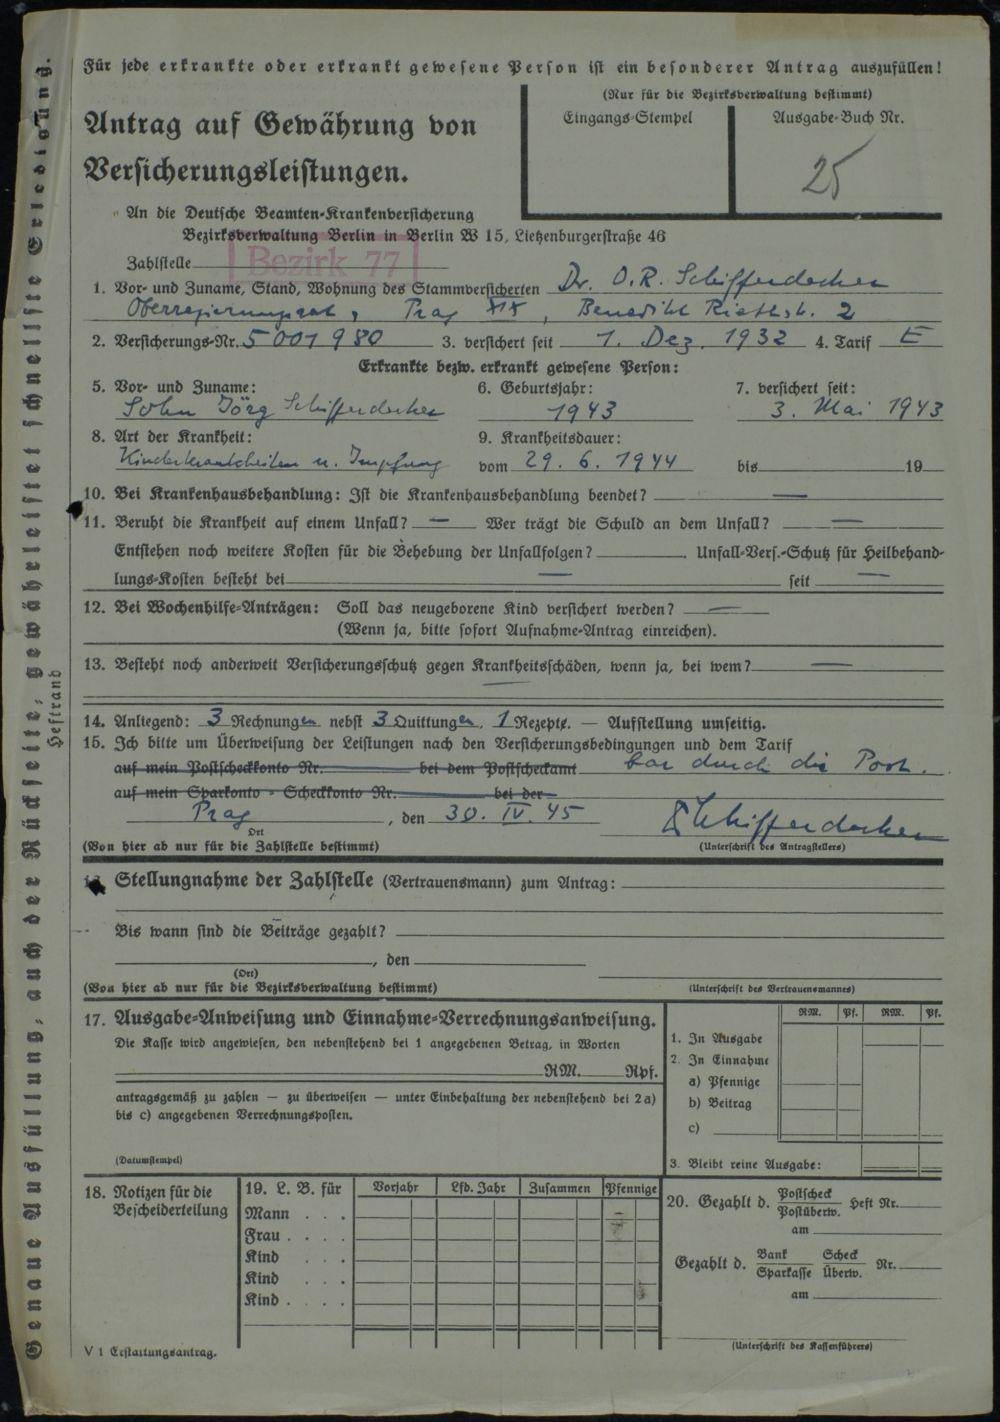 Für jede erkrankte oder erkrankt gewesene Person ist ein besonderer Antrag auszufüllen!
(Nur für die Bezirksverwaltung bestimmt)
Eingangs-Stempel
Ausgabe-Buch Nr.
25
Antrag auf Gewährung von
Versicherungsleistungen.
An die Deutsche Beamten-Krankenversicherung
Bezirksverwaltung Berlin in Berlin W 15, Lietzenburgerstraße 46
Zahlstelle
Bezirk 77
1. Vor- und Zuname, Stand, Wohnung des Stammversicherten Dr. O.R. Schifferdecker
Oberregierungsrat, Prag XIX, Benedikt Riethstr. 2
2. Versicherungs-Nr. 5 001 980 3. versichert seit 1. Dez. 1932 4. Tarif E
Erkrankte bezw. erkrankt gewesene Person:
5. Vor- und Zuname: 6. Geburtsjahr: 7. versichert seit:
Sohn Jörg Schifferdecker 1943 3. Mai 1943
8. Art der Krankheit: 9. Krankheitsdauer:
Kinderkrankheiten u. Impfung vom 29. 6. 1944 bis 19
10. Bei Krankenhausbehandlung: Ist die Krankenhausbehandlung beendet? —
11. Beruht die Krankheit auf einem Unfall? — Wer trägt die Schuld an dem Unfall? —
Entstehen noch weitere Kosten für die Behebung der Unfallfolgen? . Unfall-Vers.-Schutz für Heilbehand-
lungs-Kosten besteht bei — seit —
12. Bei Wochenhilfe-Anträgen: Soll das neugeborene Kind versichert werden? —
(Wenn ja, bitte sofort Aufnahme-Antrag einreichen).
13. Besteht noch anderweit Versicherungsschutz gegen Krankheitsschäden, wenn ja, bei wem? —
—
14. Anliegend: 3 Rechnungen nebst 3 Quittungen, 1 Rezepte. — Aufstellung umseitig.
15. Ich bitte um Überweisung der Leistungen nach den Versicherungsbedingungen und dem Tarif
auf mein Postscheckkonto Nr. bei dem Postscheckamt bar durch die Post.
auf mein Sparkonto - Scheckkonto Nr. bei der
Prag, den 30. IV. 45 Schifferdecker
Ort
(Von hier ab nur für die Zahlstelle bestimmt) (Unterschrift des Antragstellers)
Stellungnahme der Zahlstelle (Vertrauensmann) zum Antrag:
Bis wann sind die Beiträge gezahlt?
, den
(Ort)
(Von hier ab nur für die Bezirksverwaltung bestimmt) (Unterschrift des Vertrauensmannes)
17. Ausgabe-Anweisung und Einnahme-Verrechnungsanweisung.
Die Kasse wird angewiesen, den nebenstehend bei 1 angegebenen Betrag, in Worten
RM. Rpf.
antragsgemäß zu zahlen — zu überweisen — unter Einbehaltung der nebenstehend bei 2 a)
bis c) angegebenen Verrechnungsposten.
(Datumstempel)
RM. Pf. RM. Pf.
1. In Ausgabe
2. In Einnahme
a) Pfennige
b) Beitrag
c)
3. Bleibt reine Ausgabe:
18. Notizen für die
Bescheiderteilung
19. L. B. für Vorjahr Lfd. Jahr Zusammen Pfennige
Mann . . .
Frau . . . .
Kind . . .
Kind . . .
Kind . . . .
20. Gezahlt d. Postscheck Heft Nr.
Postüberw.
am
Gezahlt d. Bank Scheck Nr.
Sparkasse Überw.
am
(Unterschrift des Kassenführers)
V 1 Erstattungsantrag.
Genaue Ausfüllung, auch der Rückseite, gewährleistet schnellste Erledigung.
Heftrand